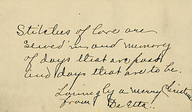 Stitches of love are
sewed in and memory
of days that are past
and days that are to be.
Lovingly a merry Christ
from De Etta.